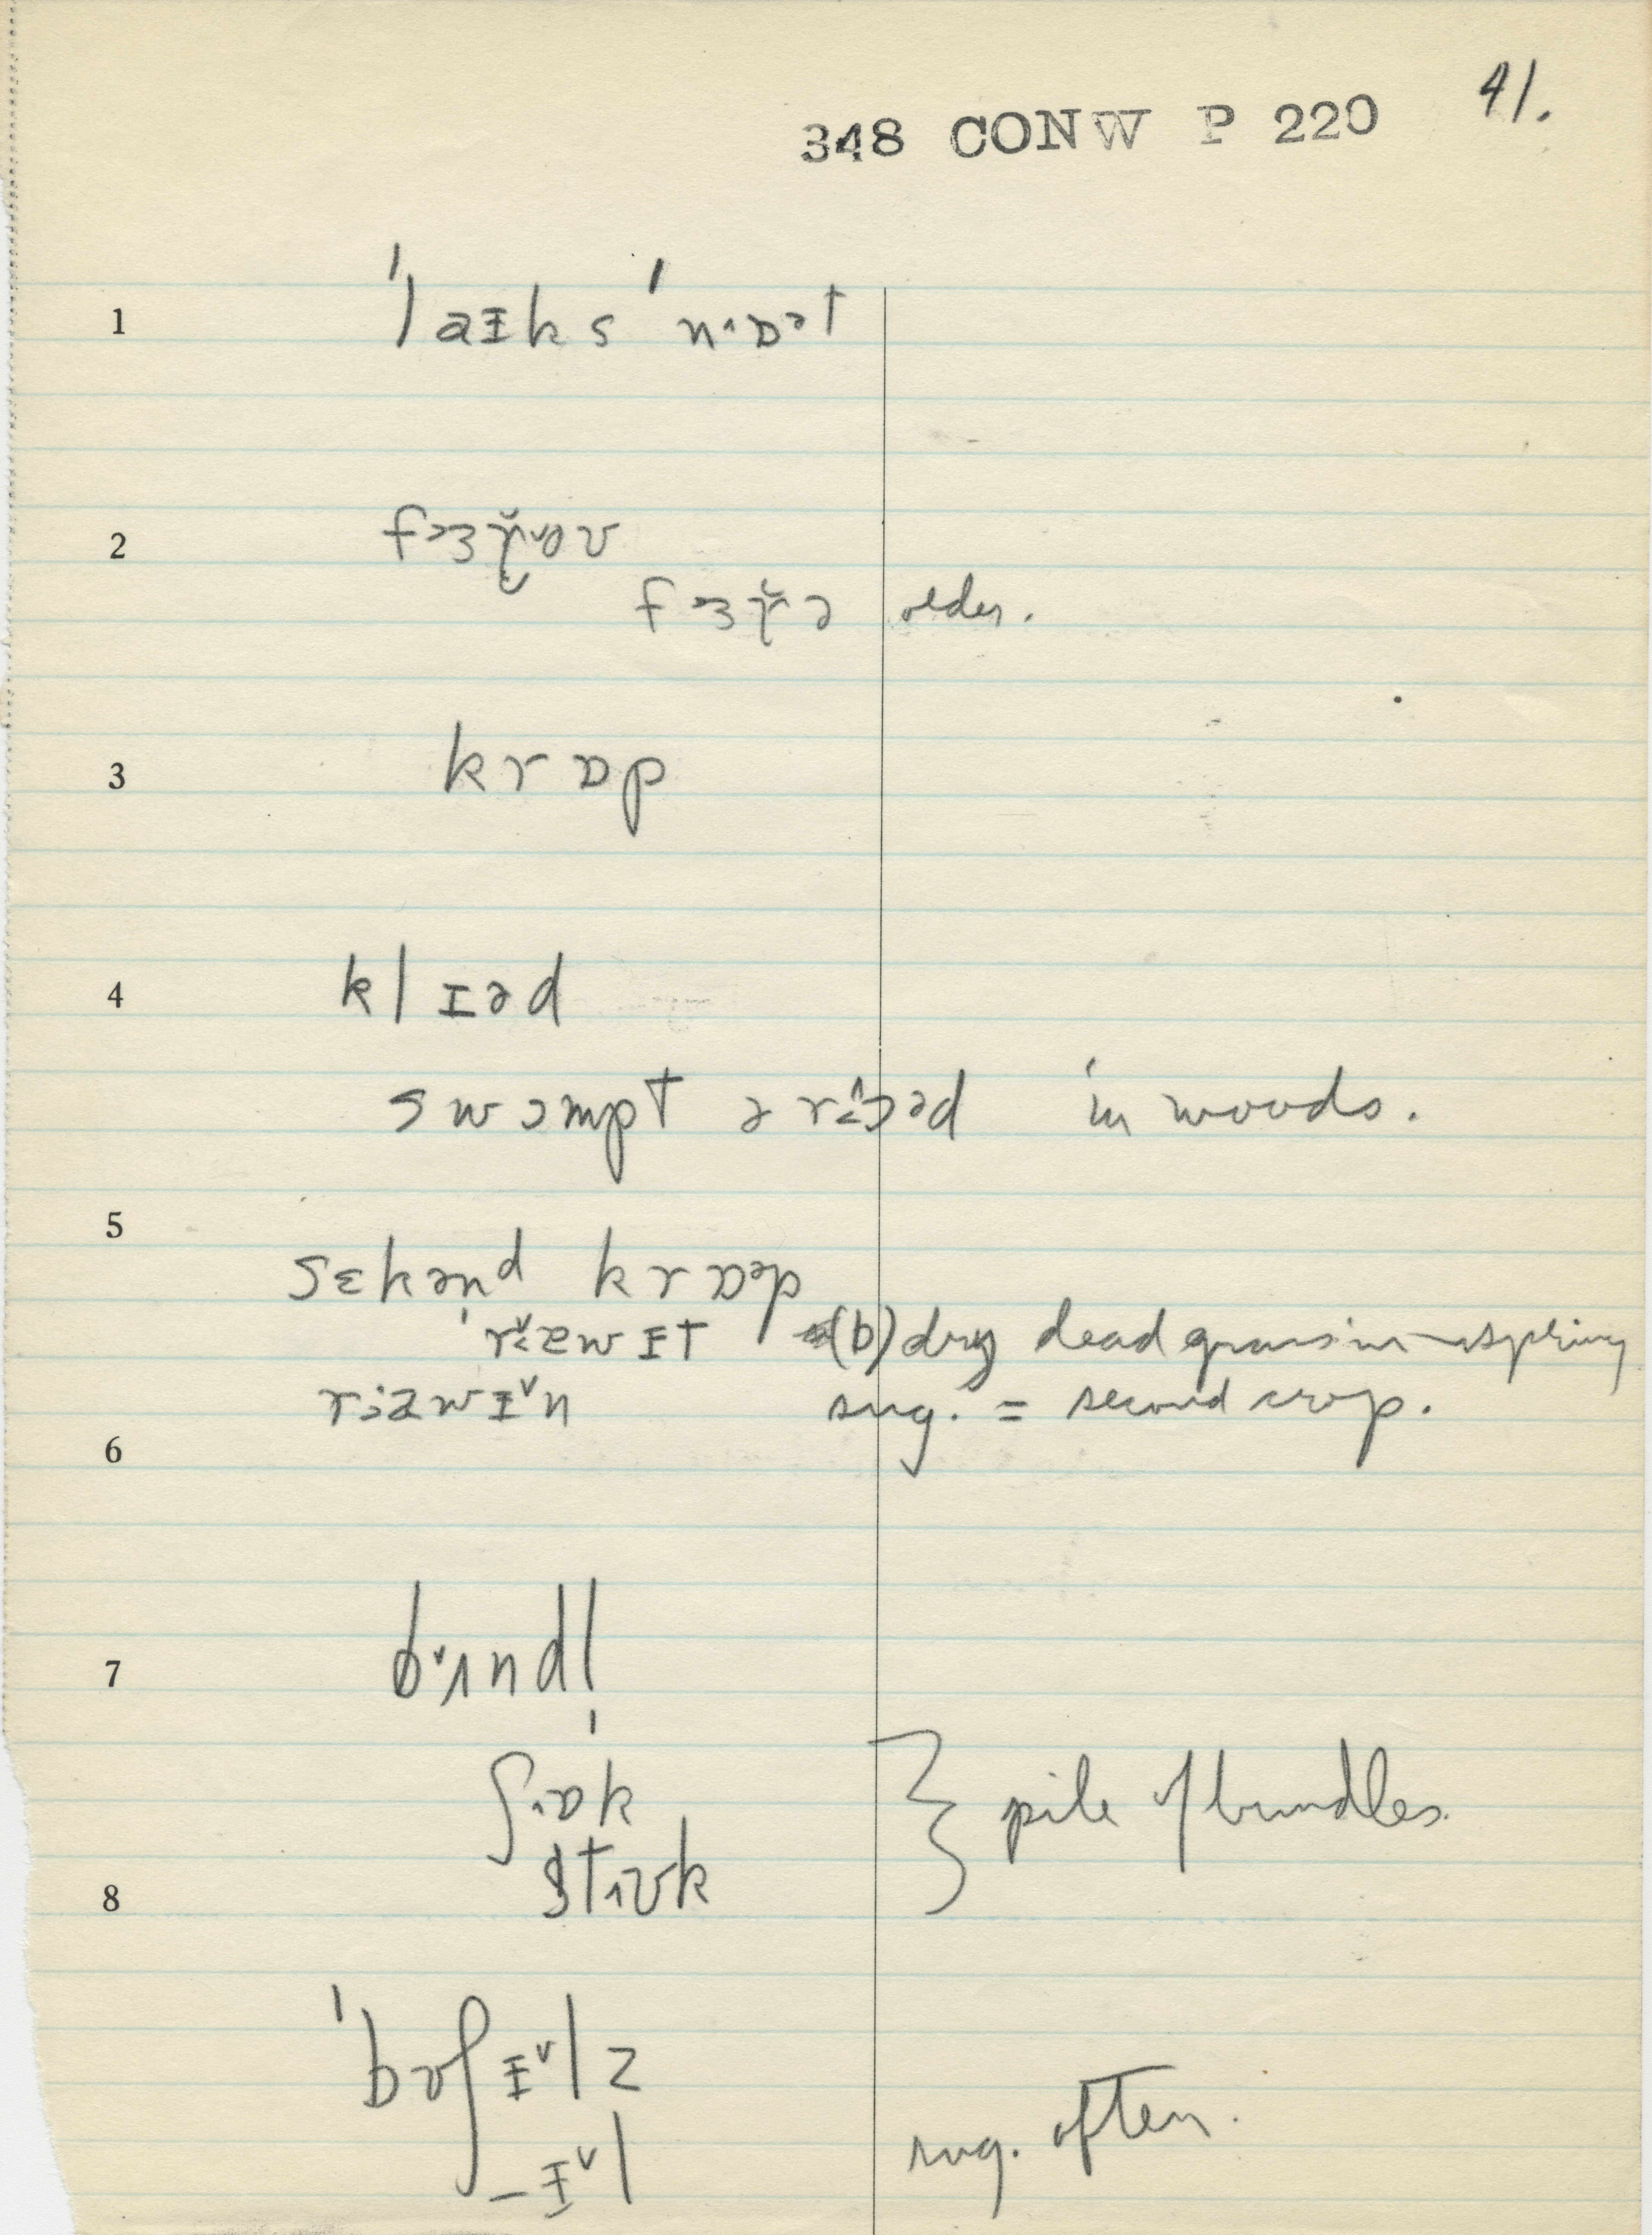 348 CONW P 220 41.
1 ˈlaɪks ˈn˄ɒᵊt
2 f>ɜɣ˅ou
fɜɣə older.
3 krɒp
4 klɪəd
swɔmpt ərɔəd in woods.
5
sɛkənd krɒəp
ˈraewɪt (b) dry dead grass in spring
raewɪ˅n sug. = second crop.
6
7 b˅ʌndl̩
ʃ˄ɒk } pile of bundles.
8 st˄ʊk
ˈbʊʃɪ˅lz
–ɪ˅l sug. often.